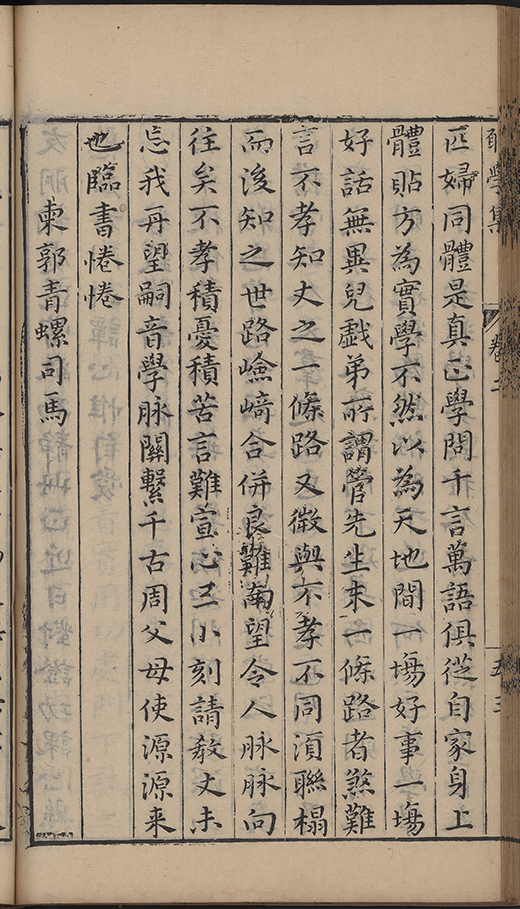 學集 卷二 五三
匹婦同體是真正學問千言萬語俱從自家身上
體貼方為實學不然以為天地間一塲好事一塲
好話無異兒戲弟所謂管先生末一條路者煞難
言不孝知丈之一條路又微與不孝不同湏聯榻
而後知之世路嶮﨑合併良難南望令人脉脉向
往矣不孝積憂積苦言難宣心三小刻請教丈未
忘我再望嗣音學脉關繫千古周父母使源源来
也臨書惓惓
柬郭青螺司馬